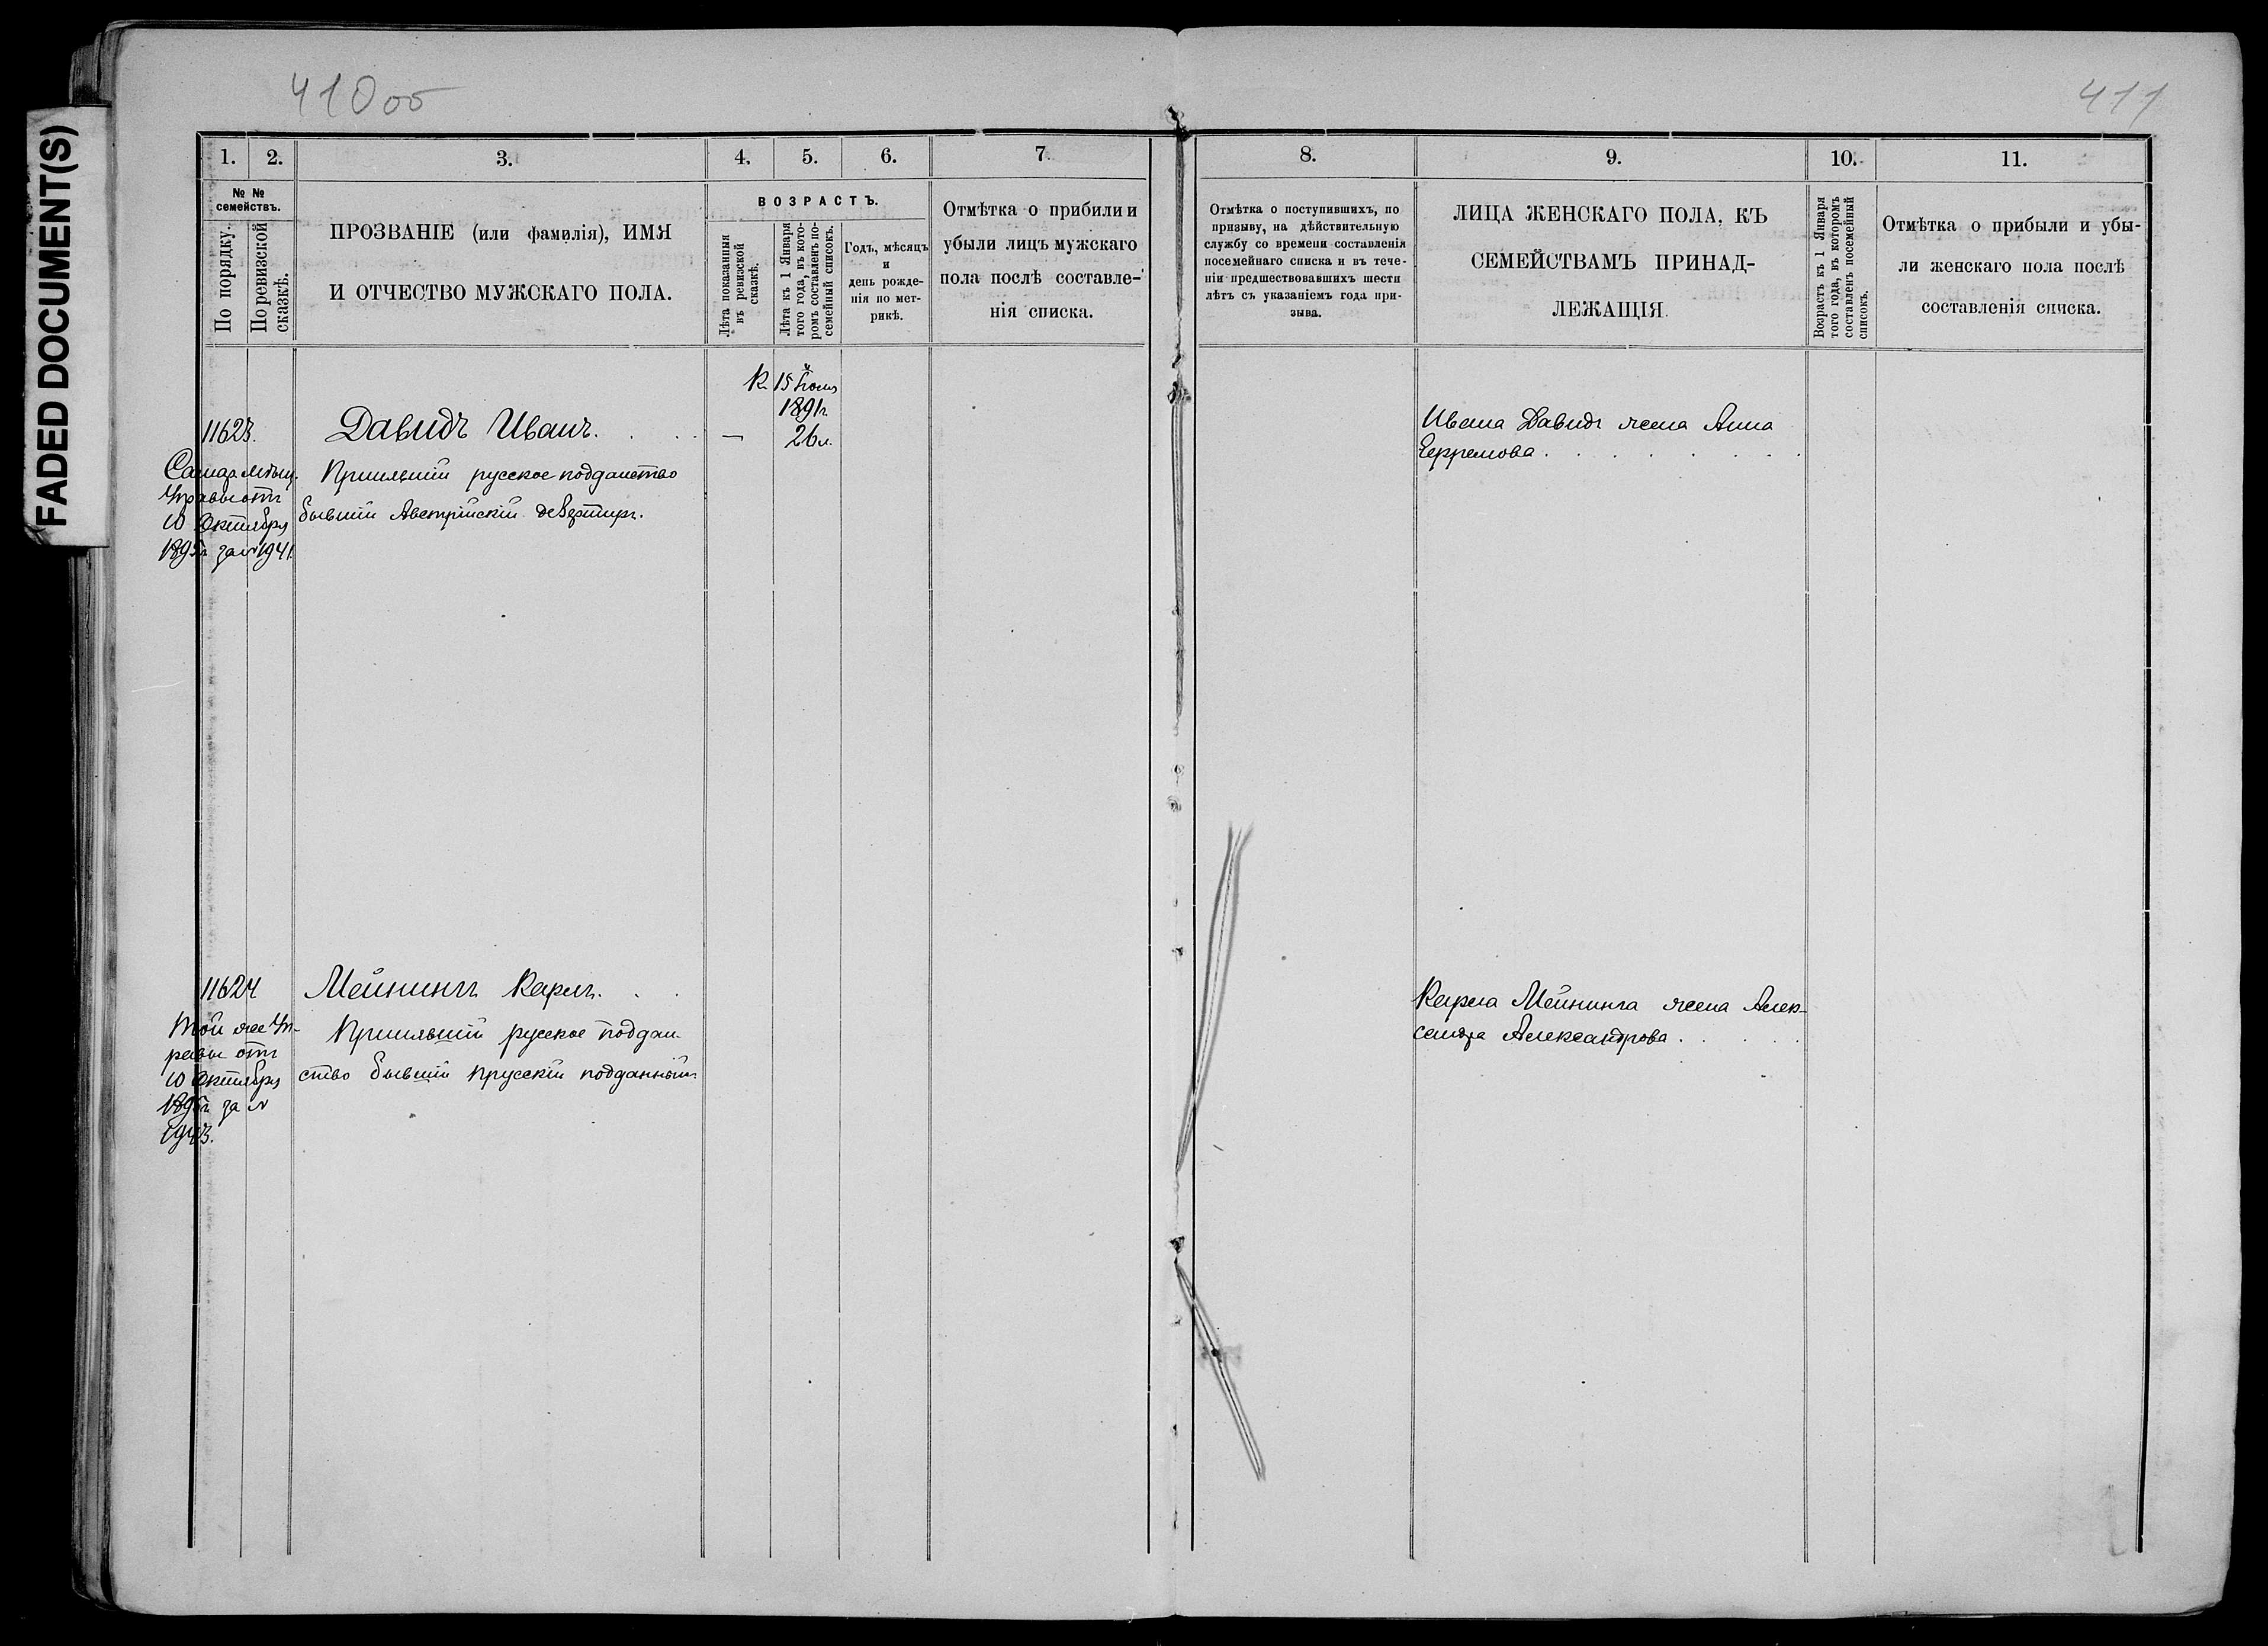 FADED DOCUMENT(S)
410об
411
1.
2.
3.
4.
5.
6.
7.
8.
9.
10.
11.
№ №
семействъ.
По порядку.
По ревизской
сказкѣ.
ПРОЗВАНІЕ (или фамилія), ИМЯ
И ОТЧЕСТВО МУЖСКАГО ПОЛА.
ВОЗРАСТЪ.
Лѣта показанныя
въ ревизской
сказкѣ.
Лѣта къ 1 Января
того года, въ кото-
ромъ составленъ по-
семейный списокъ.
Годъ, мѣсяцъ
и
день рожде-
нія по мет-
рикѣ.
Отмѣтка о прибыли и
убыли лицъ мужскаго
пола послѣ составле-
нія списка.
Отмѣтка о поступившихъ, по
призыву, на дѣйствительную
службу со времени составленія
посемейнаго списка и въ тече-
ніи предшествовавшихъ шести
лѣтъ съ указаніемъ года при-
зыва.
ЛИЦА ЖЕНСКАГО ПОЛА, КЪ
СЕМЕЙСТВАМЪ ПРИНАД-
ЛЕЖАЩІЯ.
Возрастъ къ 1 Января
того года, въ которомъ
составленъ посемейный
списокъ.
Отмѣтка о прибыли и убы-
ли женскаго пола послѣ
составленія списка.
К 15
1891г.
11623.
Давидъ Иванъ. . . .
— 26 л.
Самар. мѣщ.
Управы отъ
10 Октября
1895г. за № 1941
Принявшій русское подданство
бывшій Австрійскій дезертиръ.
Ивана Давидъ жена Анна
Ефремова . . . . . . .
11624
Мейнингъ Карлъ. . .
Той же Уп-
равы отъ
10 Октября
1895г. за №
1943.
Принявшій русское поддан-
ство бывшій прусскій подданный.
Карла Мейнинга жена Алек-
сандра Александрова . . . .